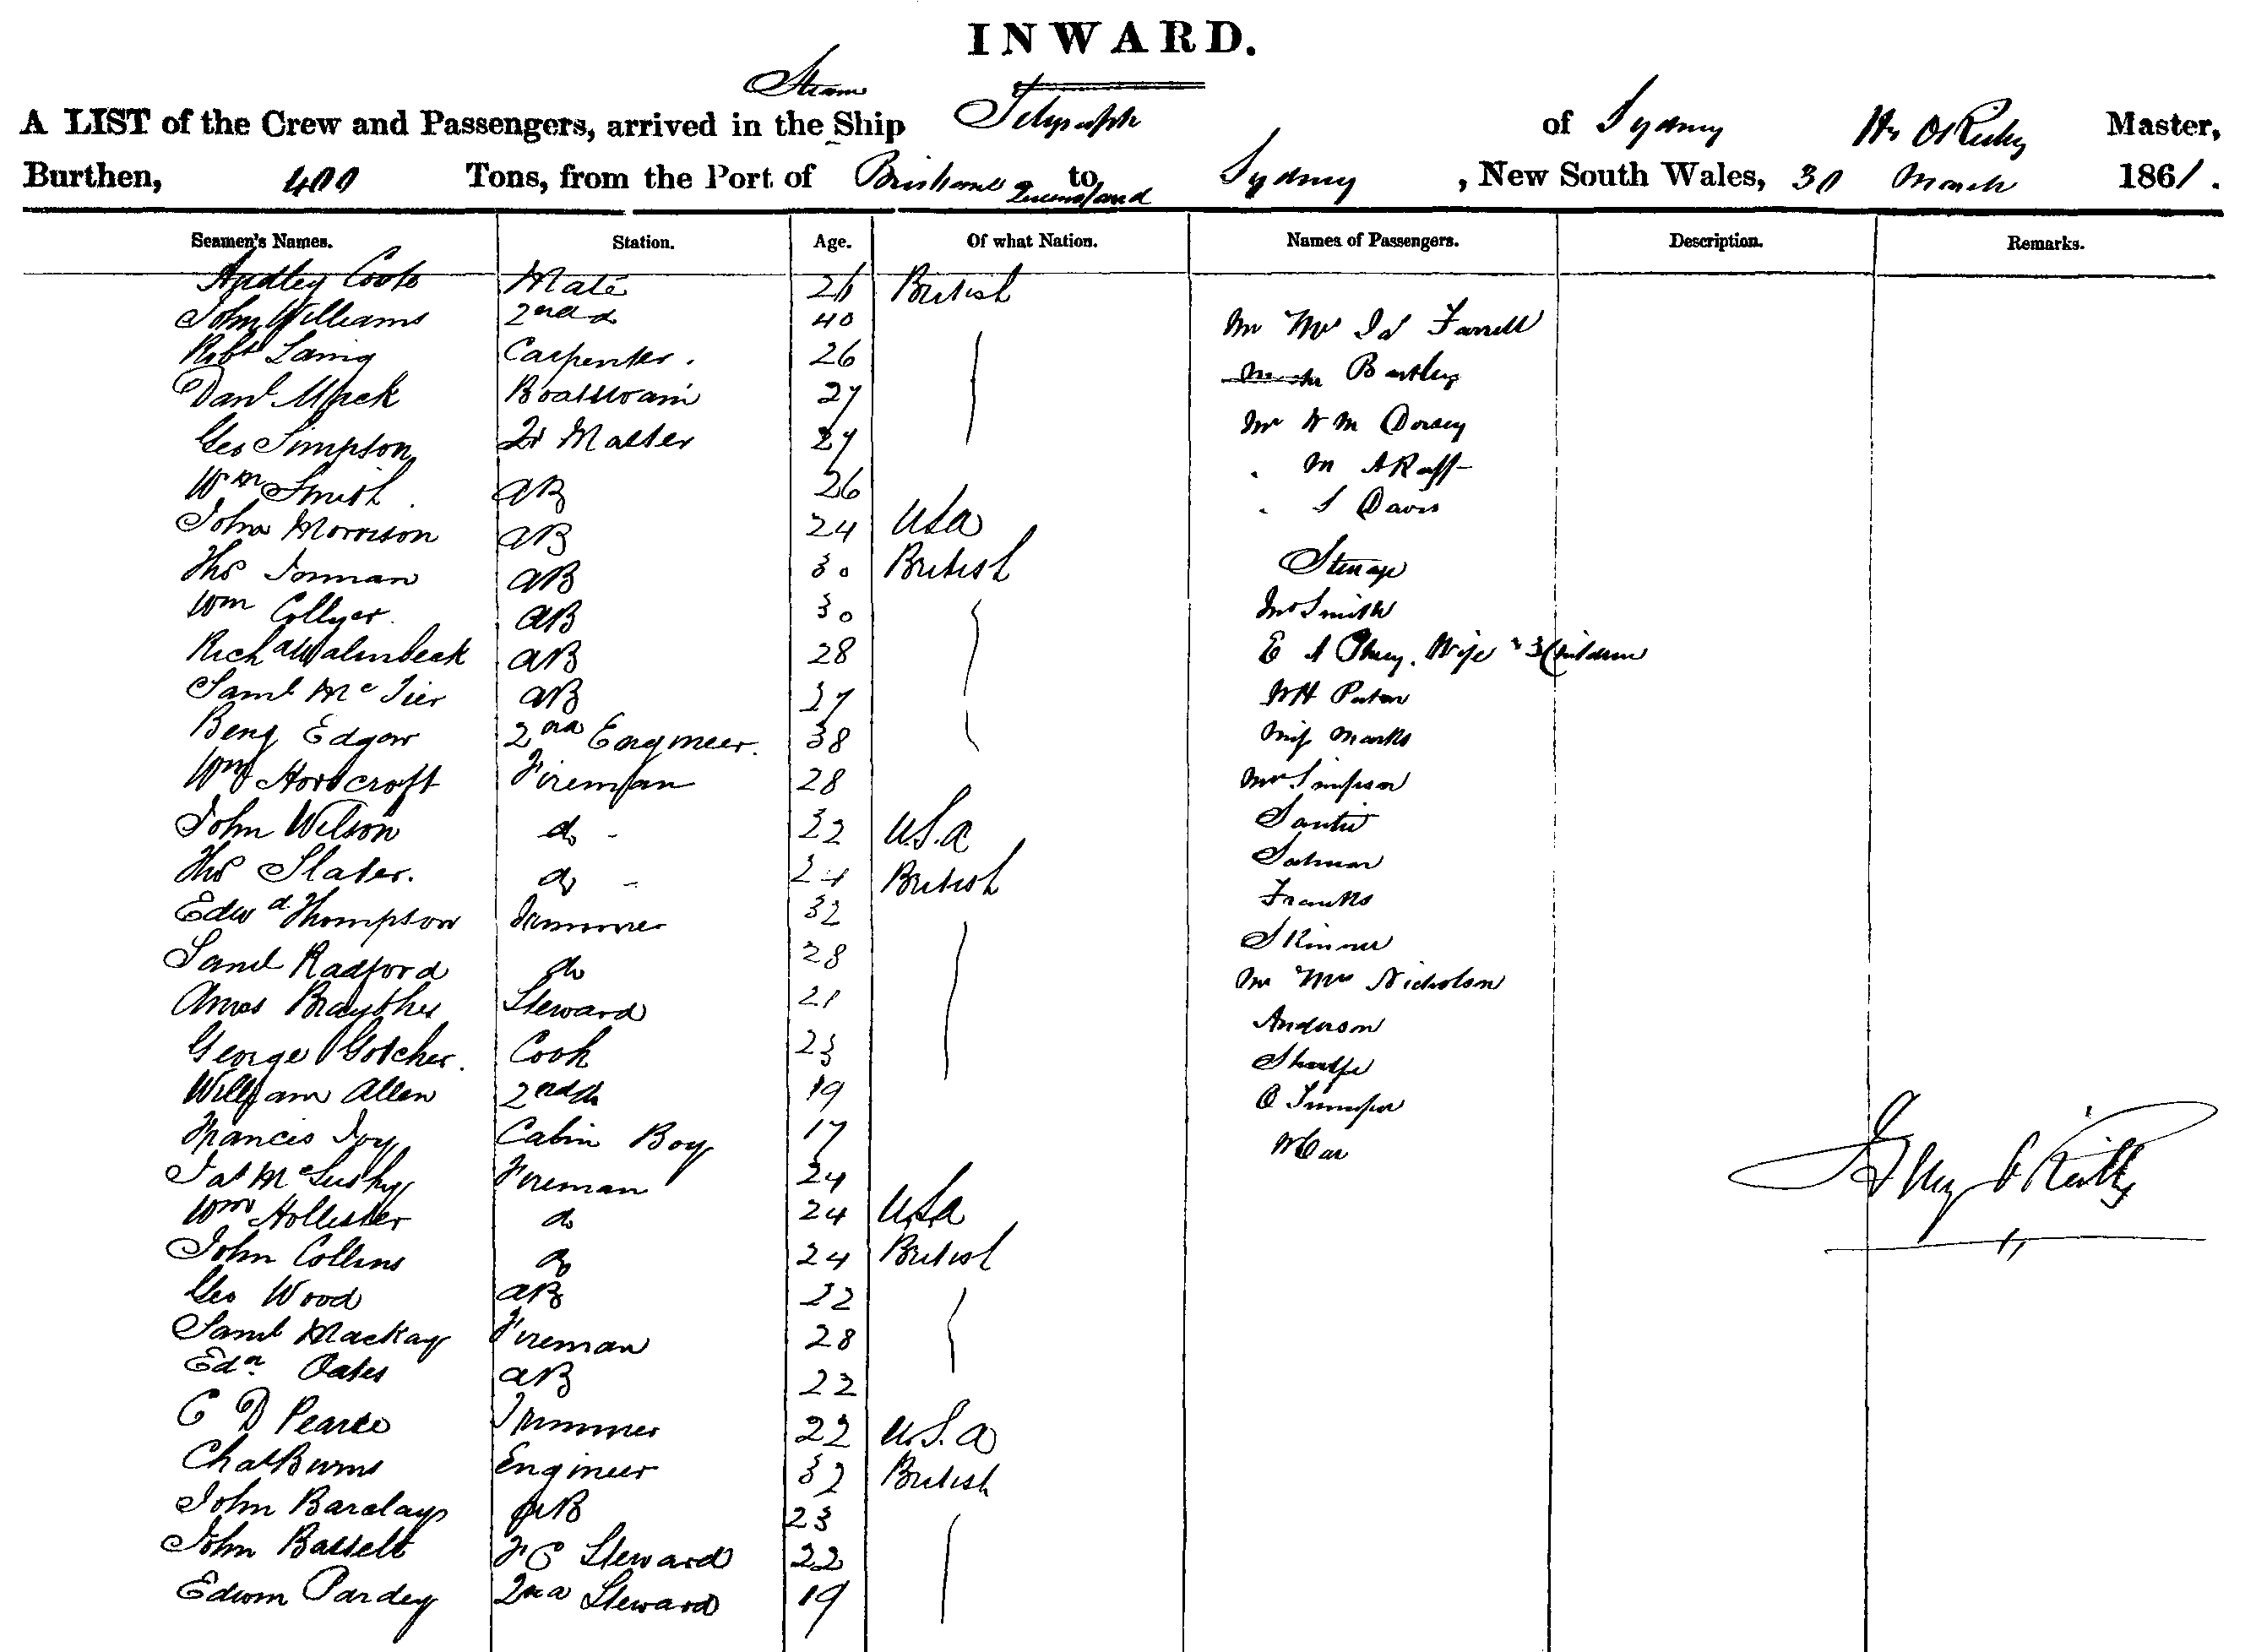 INWARD.
Steam
A LIST of the Crew and Passengers, arrived in the Ship Telegraph of Sydney Hy O'Reilly Master,
Burthen, 400 Tons, from the Port of Brisbane Queensland to Sydney, New South Wales, 30 March 1861.
Seamen's Names. Station. Age. Of what Nation. Names of Passengers. Description. Remarks.
Audley Coote Mate 26 British
John Williams 2nd do 40 Mr Mrs Farrell
Robt Laing Carpenter. 26
Danl Boatswain 27 Bartley
Geo Simpson Qr Master 27 Mr W M Dorsey
Wm Smith AB 26 " M A Raff
John Morrison AB 24 USA " S Davis
Ths AB 30 British Steerage
Wm Collyer AB 30 Mr Smith
Richd Walmbeck AB 28 E A Wife & 3 Children
Saml McTier AB 37 WH
Benj Edgar 2nd Engineer. 38 Miss Marks
Wm Horscroft Fireman 28 Mr Simpson
John Wilson do - 32 U.S.A
Ths Slater. do - 24 British
Edwd Thompson Trimmer 32 Franks
Saml Radford do 28 Skinner
Amos Steward 21 Mr Mrs Nicholson
George Gotcher. Cook 23 Anderson
William Allen 2nd do 19 Sharpe
Francis Joy Cabin Boy 17
Jas Fireman 24
Wm Hollister do 24 USA
John Collins do 24 British
Geo Wood AB 22
Saml Mackay Fireman 28
Edn. Oates AB 22
C D Pearce Trimmer 22 U.S.A
Chas Burns Engineer 32 British
John Barclay AB 23
John Bassett F C Steward 22
Edwin Pardey 2nd Steward 19
Hy O'Reilly